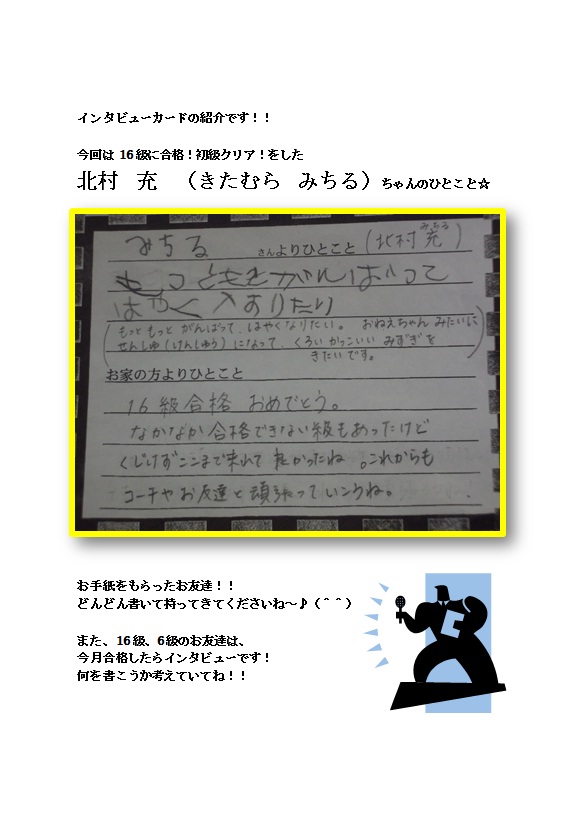 インタビューカードの紹介です！！
今回は 16級に合格！初級クリア！をした
北村　充　（きたむら　みちる）ちゃんのひとこと☆
みちる さんよりひとこと (北村充) みちる
もっともっとがんばって
はやく
(もっともっと がんばって、はやくなりたい。 おねえちゃん みたいに
せんしゅ(けんしゅう)になって、くろい かっこいい みずぎを
きたいです。)
お家の方よりひとこと
16級合格 おめでとう。
なかなか合格できない級もあったけど
くじけずここまで来れて 良かったね。これからも
コーチやお友達と頑張っていこうね。
お手紙をもらったお友達！！
どんどん書いて持ってきてくださいね～♪（＾＾）
また、16級、6級のお友達は、
今月合格したらインタビューです！
何を書こうか考えていてね！！
E